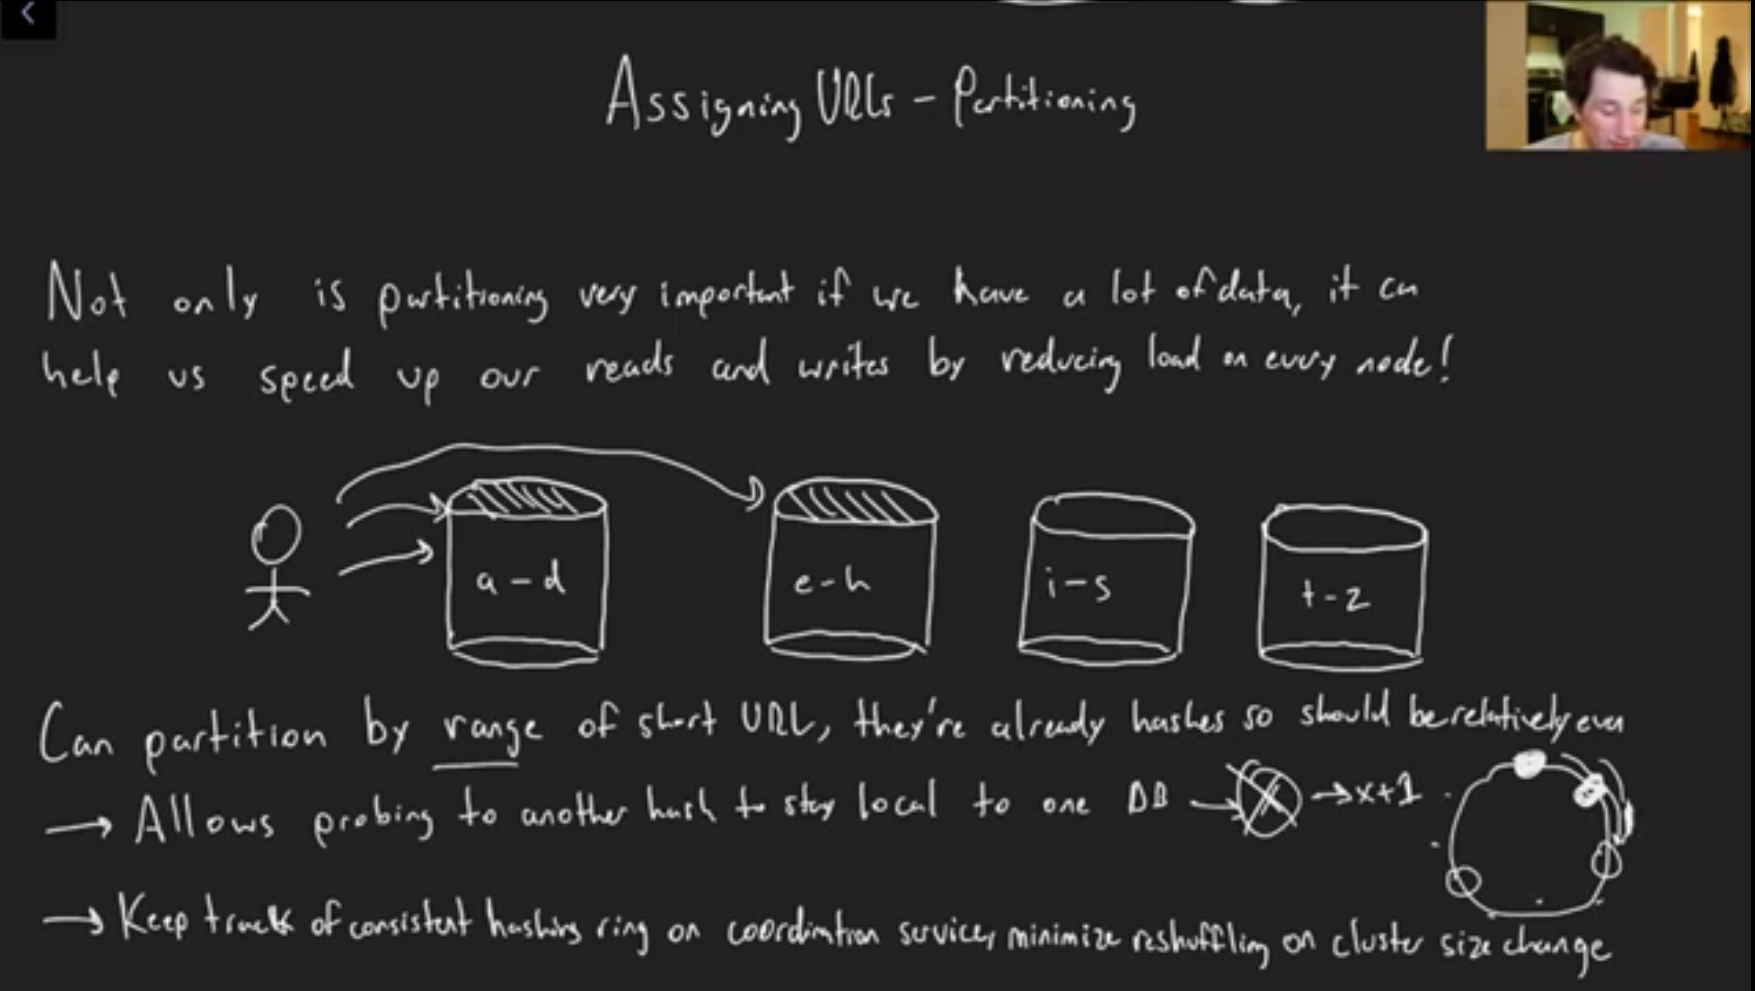 Assigning URLs - Partitioning
Not only is partitioning very important if we have a lot of data, it can
help us speed up our reads and writes by reducing load on every node!
a-d
e-h
i-s
t-z
Can partition by range of short URL, they're already hashes so should be relatively even
→ Allows probing to another hash to stay local to one DB → x → x+1
→ Keep track of consistent hashing ring on coordination service, minimize reshuffling on cluster size change